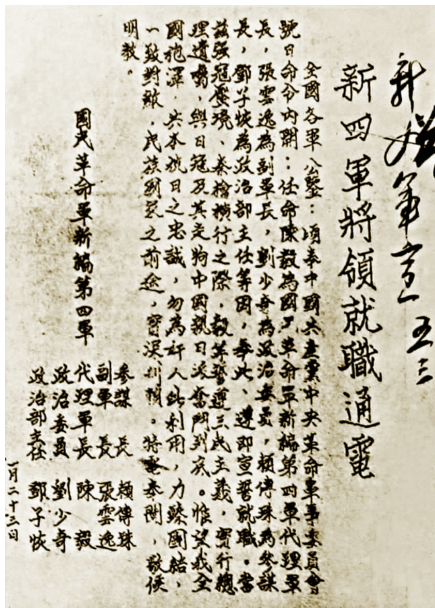 新四軍將領就職通電
全國各軍公鑒：頃奉中國共產黨中央革命軍事委員會
號日命令內開：任命陳毅為國民革命軍新編第四軍代理軍
長，張雲逸為副軍長，劉少奇為政治委員，賴傳珠為參謀
長，鄧子恢為政治部主任等因，奉此，遵即宣誓就職。當
茲強寇壓境，秦檜橫行之際，毅等誓遵三民主義，實行總
理遺囑，與日寇及其走狗中國親日派奮鬥到底。惟望我全
國袍澤，共本抗日之忠誠，勿為奸人所利用，力臻團結，
一致對敵，民族國家之前途，實深利賴。特電奉聞，敬候
明教。
國民革命軍新編第四軍
參謀長 賴傳珠
副軍長 張雲逸
代理軍長 陳毅
政治委員 劉少奇
政治部主任 鄧子恢
一月二十三日